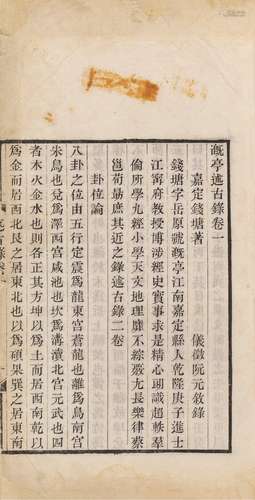 溉亭述古錄卷一
嘉定錢塘著　儀徵阮元敘錄
錢塘字岳原號溉亭江南嘉定縣人乾隆庚子進士
江寧府教授博涉經史實事求是精心朗識超軼羣
倫所學九經小學天文地理靡不綜覈尤長樂律蔡
邕荀勗庶其近之錄述古錄二卷
卦位論
八卦之位由五行定震爲龍東宮蒼龍也離爲鳥南宮
朱鳥也兌爲澤西宮咸池也坎爲溝瀆北宮元武也四
者木火金水也則各正其方坤以爲土而居西南乾以
爲金而居西北艮之居東北也以爲碩果巽之居東南